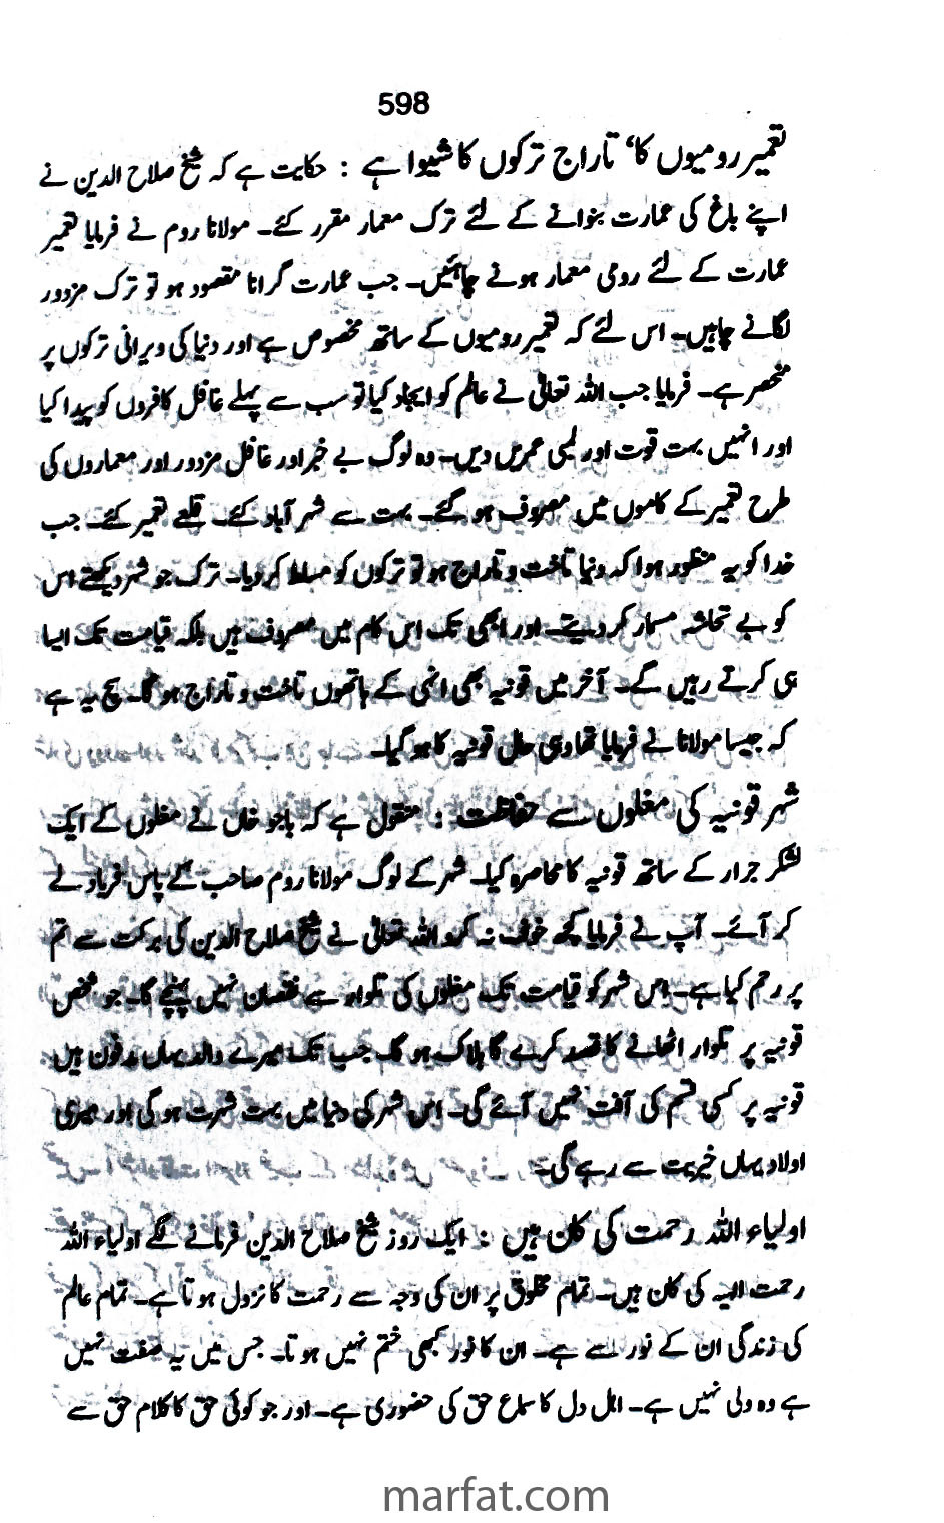 598
تعمیر رومیوں کا‘ تاراج ترکوں کا شیوا ہے : حکایت ہے کہ شیخ صلاح الدین نے
اپنے باغ کی عمارت بنوانے کے لئے ترک معمار مقرر کئے۔ مولانا روم نے فرمایا تعمیر
عمارت کے لئے رومی معمار ہونے چاہئیں۔ جب عمارت گرانا مقصود ہو تو ترک مزدور
لگانے چاہیں۔ اس لئے کہ تعمیر رومیوں کے ساتھ مخصوص ہے اور دنیا کی ویرانی ترکوں پر
منحصر ہے۔ فرمایا جب اللہ تعالیٰ نے عالم کو ایجاد کیا تو سب سے پہلے غافل کافروں کو پیدا کیا
اور انہیں بہت قوت اور لمبی عمریں دیں۔ وہ لوگ بے خبر اور غافل مزدور اور معماروں کی
طرح تعمیر کے کاموں میں مصروف ہو گئے۔ بہت سے شہر آباد کئے۔ قلعے تعمیر کئے۔ جب
خدا کو یہ منظور ہوا کہ دنیا تاخت و تاراج ہو تو ترکوں کو مسلط کر دیا۔ ترک جو شہر دیکھتے اس
کو بے تحاشہ مسمار کر دیتے۔ اور ابھی تک اس کام میں مصروف ہیں بلکہ قیامت تک ایسا
ہی کرتے رہیں گے۔ آخر میں قونیہ بھی انہی کے ہاتھوں تاخت و تاراج ہو گا۔ سچ یہ ہے
کہ جیسا مولانا نے فرمایا تھا وہی حال قونیہ کا ہو گیا۔
شہر قونیہ کی مغلوں سے حفاظت : منقول ہے کہ باجو خاں نے مغلوں کے ایک
لشکر جرار کے ساتھ قونیہ کا محاصرہ کیا۔ شہر کے لوگ مولانا روم صاحب کے پاس فریاد لے
کر آئے۔ آپ نے فرمایا کچھ خوف نہ کرو اللہ تعالیٰ نے شیخ صلاح الدین کی برکت سے تم
پر رحم کیا ہے۔ اس شہر کو قیامت تک مغلوں کی تلوار سے نقصان نہیں پہنچے گا۔ جو شخص
قونیہ پر تلوار اٹھانے کا قصد کرے گا ہلاک ہو گا۔ جب تک میرے والد یہاں مدفون ہیں
قونیہ پر کسی قسم کی آفت نہیں آئے گی۔ اس شہر کی دنیا میں بہت شہرت ہو گی اور میری
اولاد یہاں خیریت سے رہے گی۔
اولیاء اللہ رحمت کی کان ہیں : ایک روز شیخ صلاح الدین فرمانے لگے اولیاء اللہ
رحمت الہیہ کی کان ہیں۔ تمام مخلوق پر ان کی وجہ سے رحمت کا نزول ہوتا ہے۔ تمام عالم
کی زندگی ان کے نور سے ہے۔ ان کا نور کبھی ختم نہیں ہوتا۔ جس میں یہ صفت نہیں
ہے وہ ولی نہیں ہے۔ اہل دل کا سماع حق کی حضوری ہے۔ اور جو کوئی حق کا کلام حق سے
marfat.com